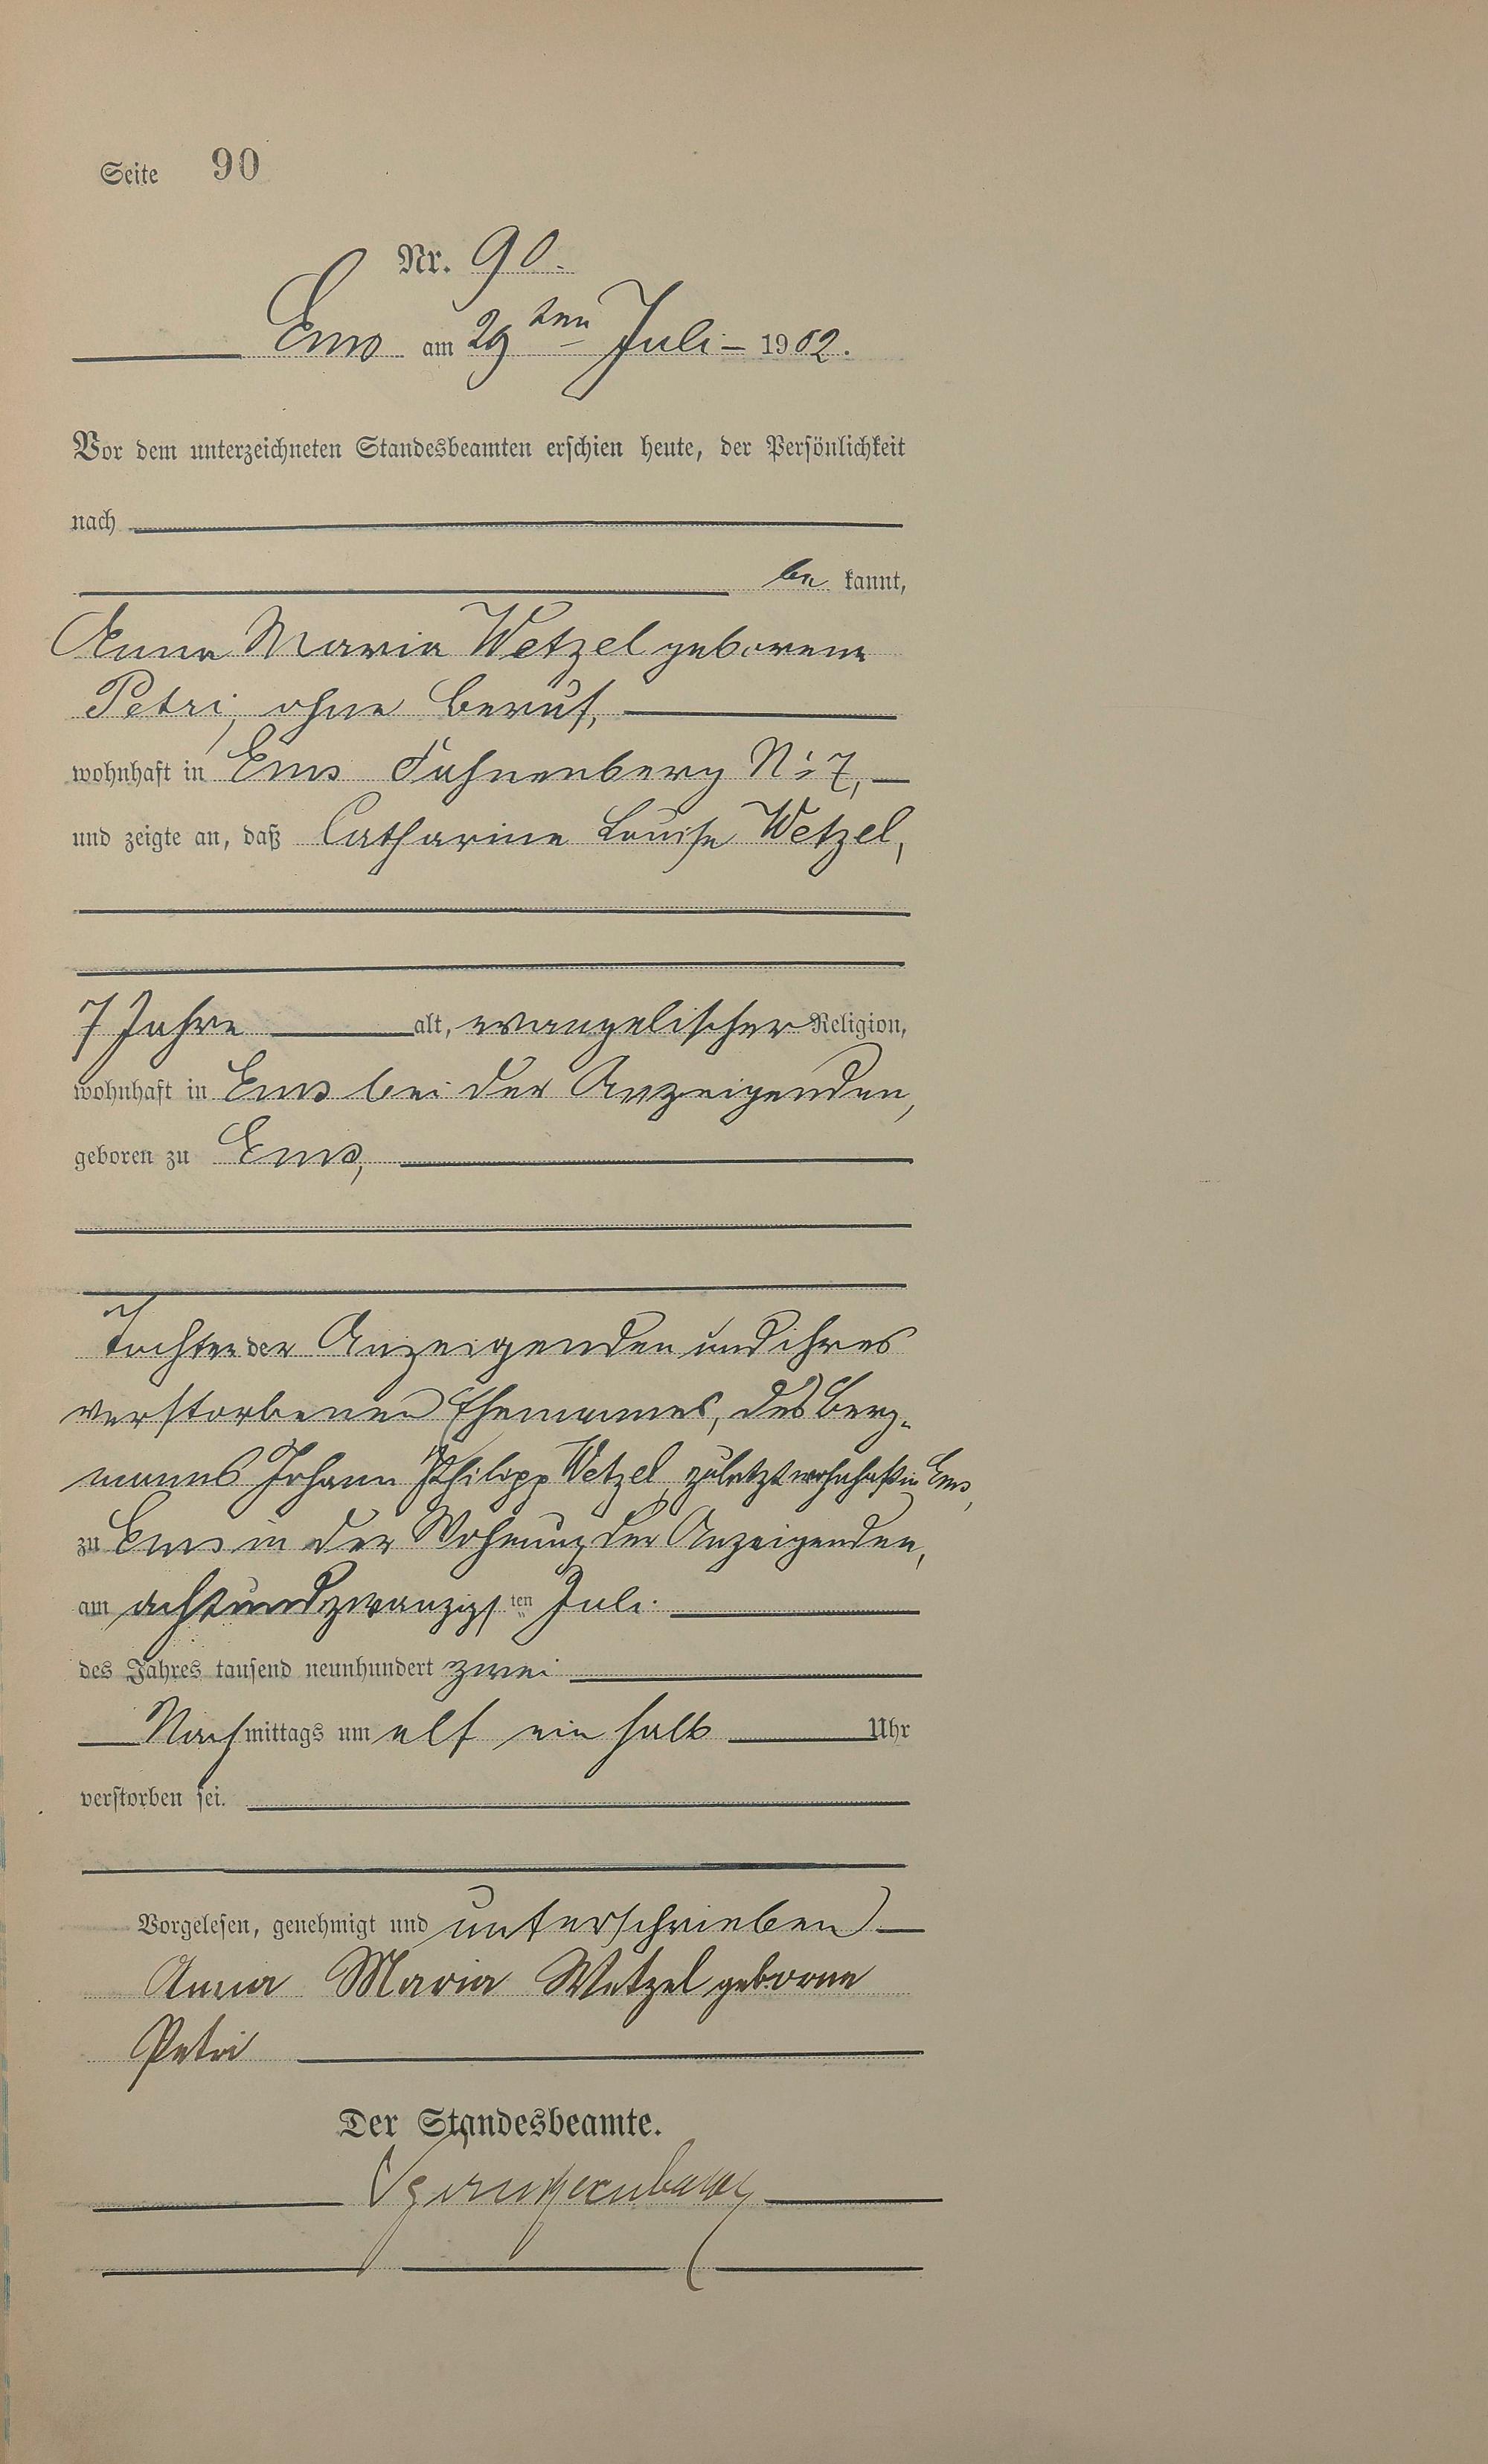 Seite 90
Nr. 90.
Ems am 29ten Juli 1902.
Vor dem unterzeichneten Standesbeamten erschien heute, der Persönlichkeit
nach
be kannt,
Anna Maria Wetzel geborene
Petri, ohne Beruf,
wohnhaft in Ems Fahnenberg No 7,
und zeigte an, daß Catharine Louise Wetzel,
7 Jahre alt, evangelischer Religion,
wohnhaft in Ems bei der Anzeigenden,
geboren zu Ems,
Tochter der Anzeigenden und ihres
verstorbenen Ehemannes, des Berg-
manns Johann Philipp Wetzel, zuletzt wohnhaft in Ems,
zu Ems in der Wohnung der Anzeigenden,
am achtundzwanzigsten Juli
des Jahres tausend neunhundert zwei
Nachmittags um elf ein halb Uhr
verstorben sei.
Vorgelesen, genehmigt und unterschrieben
Anna Maria Wetzel geborne
Petri
Der Standesbeamte.